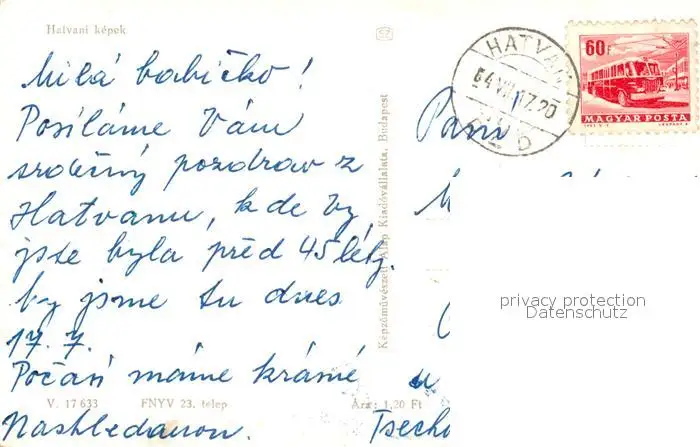 Hatvani képek
Milá babičko!
Posíláme Vám
srdečný pozdrav z
Hatvanu, kde Vy
jste byla před 45 léty.
by jsme tu dnes
17. 7.
Počasí máme krásné
Nashledanou.
V. 17 633 FNYV 23. telep Ára: 1,20 Ft
Képzőművészeti Alap Kiadóvállalata, Budapest
HATVAN
60f
MAGYAR POSTA
Paní
privacy protection
Datenschutz
Tsecho